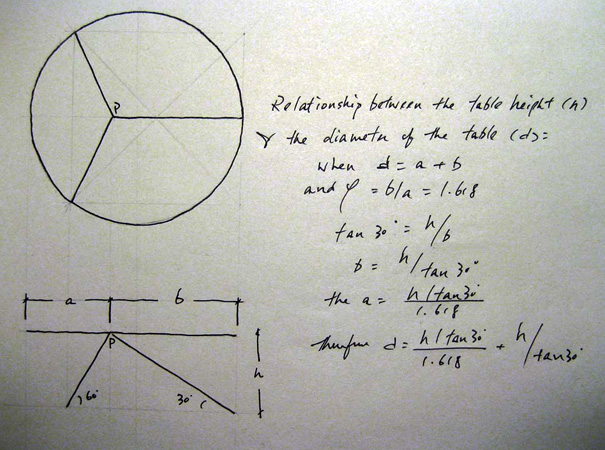 P
Relationship between the table height (h)
& the diameter of the table (d)=
when d = a + b
and φ = b/a = 1.618
tan 30° = h/b
b = h/tan 30°
the a = h/tan30° / 1.618
therefore d = h/tan 30° / 1.618 + h/tan30°
a b
P
h
60° 30°